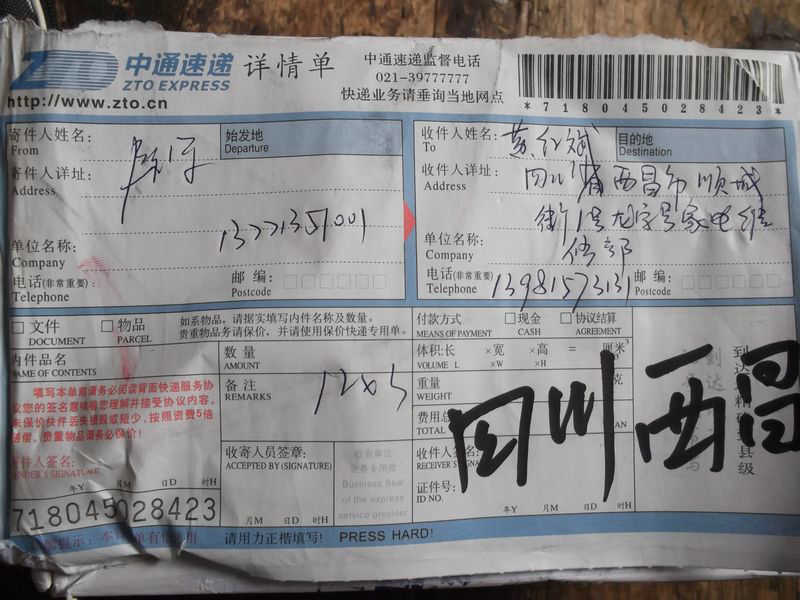 ZTO 中通速递 详情单
ZTO EXPRESS
http://www.zto.cn
中通速递监督电话
021-39777777
快递业务请垂询当地网点
*718045028423*
寄件人姓名:
From
始发地
Departure
寄件人详址:
Address
单位名称:
Company
电话(非常重要):
Telephone
邮编:
Postcode
收件人姓名:
To
目的地
Destination
收件人详址:
Address
四川省西昌市顺城
街1号龙字号家电维
修部
单位名称:
Company
电话(非常重要)
Telephone
13981573131
邮编:
Postcode
文件
DOCUMENT
物品
PARCEL
如系物品,请据实填写内件名称及数量。
贵重物品务请保价,并请使用保价快递专用单。
付款方式
MEANS OF PAYMENT
现金
CASH
协议结算
AGREEMENT
内件品名
NAME OF CONTENTS
数量
AMOUNT
备注
REMARKS
体积:长 ×宽 ×高 = 厘米³
VOLUME L ×W ×H
重量
WEIGHT
费用总
TOTAL
填写本单前请务必阅读背面快递服务协
议!您的签名意味着您理解并接受协议内容。
未保价快件丢失损毁或短少,按照资费5倍
赔偿,贵重物品请务必保价!
寄件人签名:
SENDER'S SIGNATURE
年Y 月M 日D 时H
收寄人员签章:
ACCEPTED BY (SIGNATURE)
月M 日D 时H
Business Seal
of the express
service provider
收件人签名
RECEIVER'S
证件号:
ID NO.
年Y 月M 日D 时H
四川西昌
718045028423
请用力正楷填写! PRESS HARD!